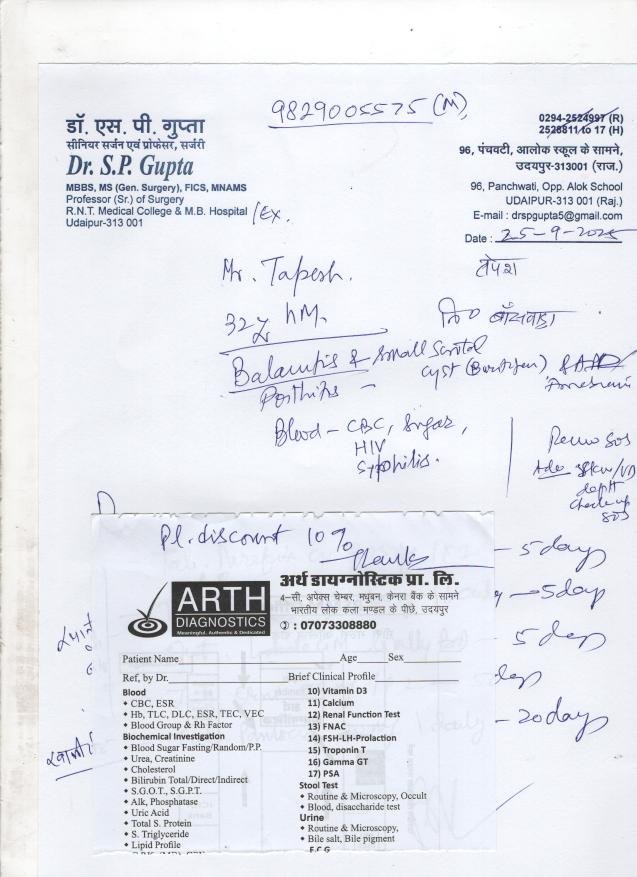 9829005575 (M)
डॉ. एस. पी. गुप्ता
सीनियर सर्जन एवं प्रोफेसर, सर्जरी
Dr. S.P. Gupta
MBBS, MS (Gen. Surgery), FICS, MNAMS
Professor (Sr.) of Surgery
R.N.T. Medical College & M.B. Hospital /Ex.
Udaipur-313 001
0294-2524997 (R)
2528811 to 17 (H)
96, पंचवटी, आलोक स्कूल के सामने,
उदयपुर-313001 (राज.)
96, Panchwati, Opp. Alok School
UDAIPUR-313 001 (Raj.)
E-mail : drspgupta5@gmail.com
Date : 25-9-2025
Mr. Tapesh.
तपेश
32 y
बाँसवाड़ा
Balanitis & small
Cyst
Blood - CBC, Sugar,
HIV
Syphilis.
SOS
Adv Skin/VD
deptt
Check up
SOS
Pl. discount 10%
Thanks
- 5 days
- 5 day
- 5 day
- 20 days
ARTH
DIAGNOSTICS
Meaningful, Authentic & Dedicated
अर्थ डायग्नोस्टिक प्रा. लि.
4-सी, अपेक्स चेम्बर, मधुबन, केनरा बैंक के सामने
भारतीय लोक कला मण्डल के पीछे, उदयपुर
: 07073308880
Patient Name Age Sex
Ref, by Dr. Brief Clinical Profile
Blood
CBC, ESR
Hb, TLC, DLC, ESR, TEC, VEC
Blood Group & Rh Factor
Biochemical Investigation
Blood Sugar Fasting/Random/P.P.
Urea, Creatinine
Cholesterol
Bilirubin Total/Direct/Indirect
S.G.O.T., S.G.P.T.
Alk, Phosphatase
Uric Acid
Total S. Protein
S. Triglyceride
Lipid Profile
10) Vitamin D3
11) Calcium
12) Renal Function Test
13) FNAC
14) FSH-LH-Prolaction
15) Troponin T
16) Gamma GT
17) PSA
Stool Test
Routine & Microscopy, Occult
Blood, disaccharide test
Urine
Routine & Microscopy,
Bile salt, Bile pigment
E.C.G